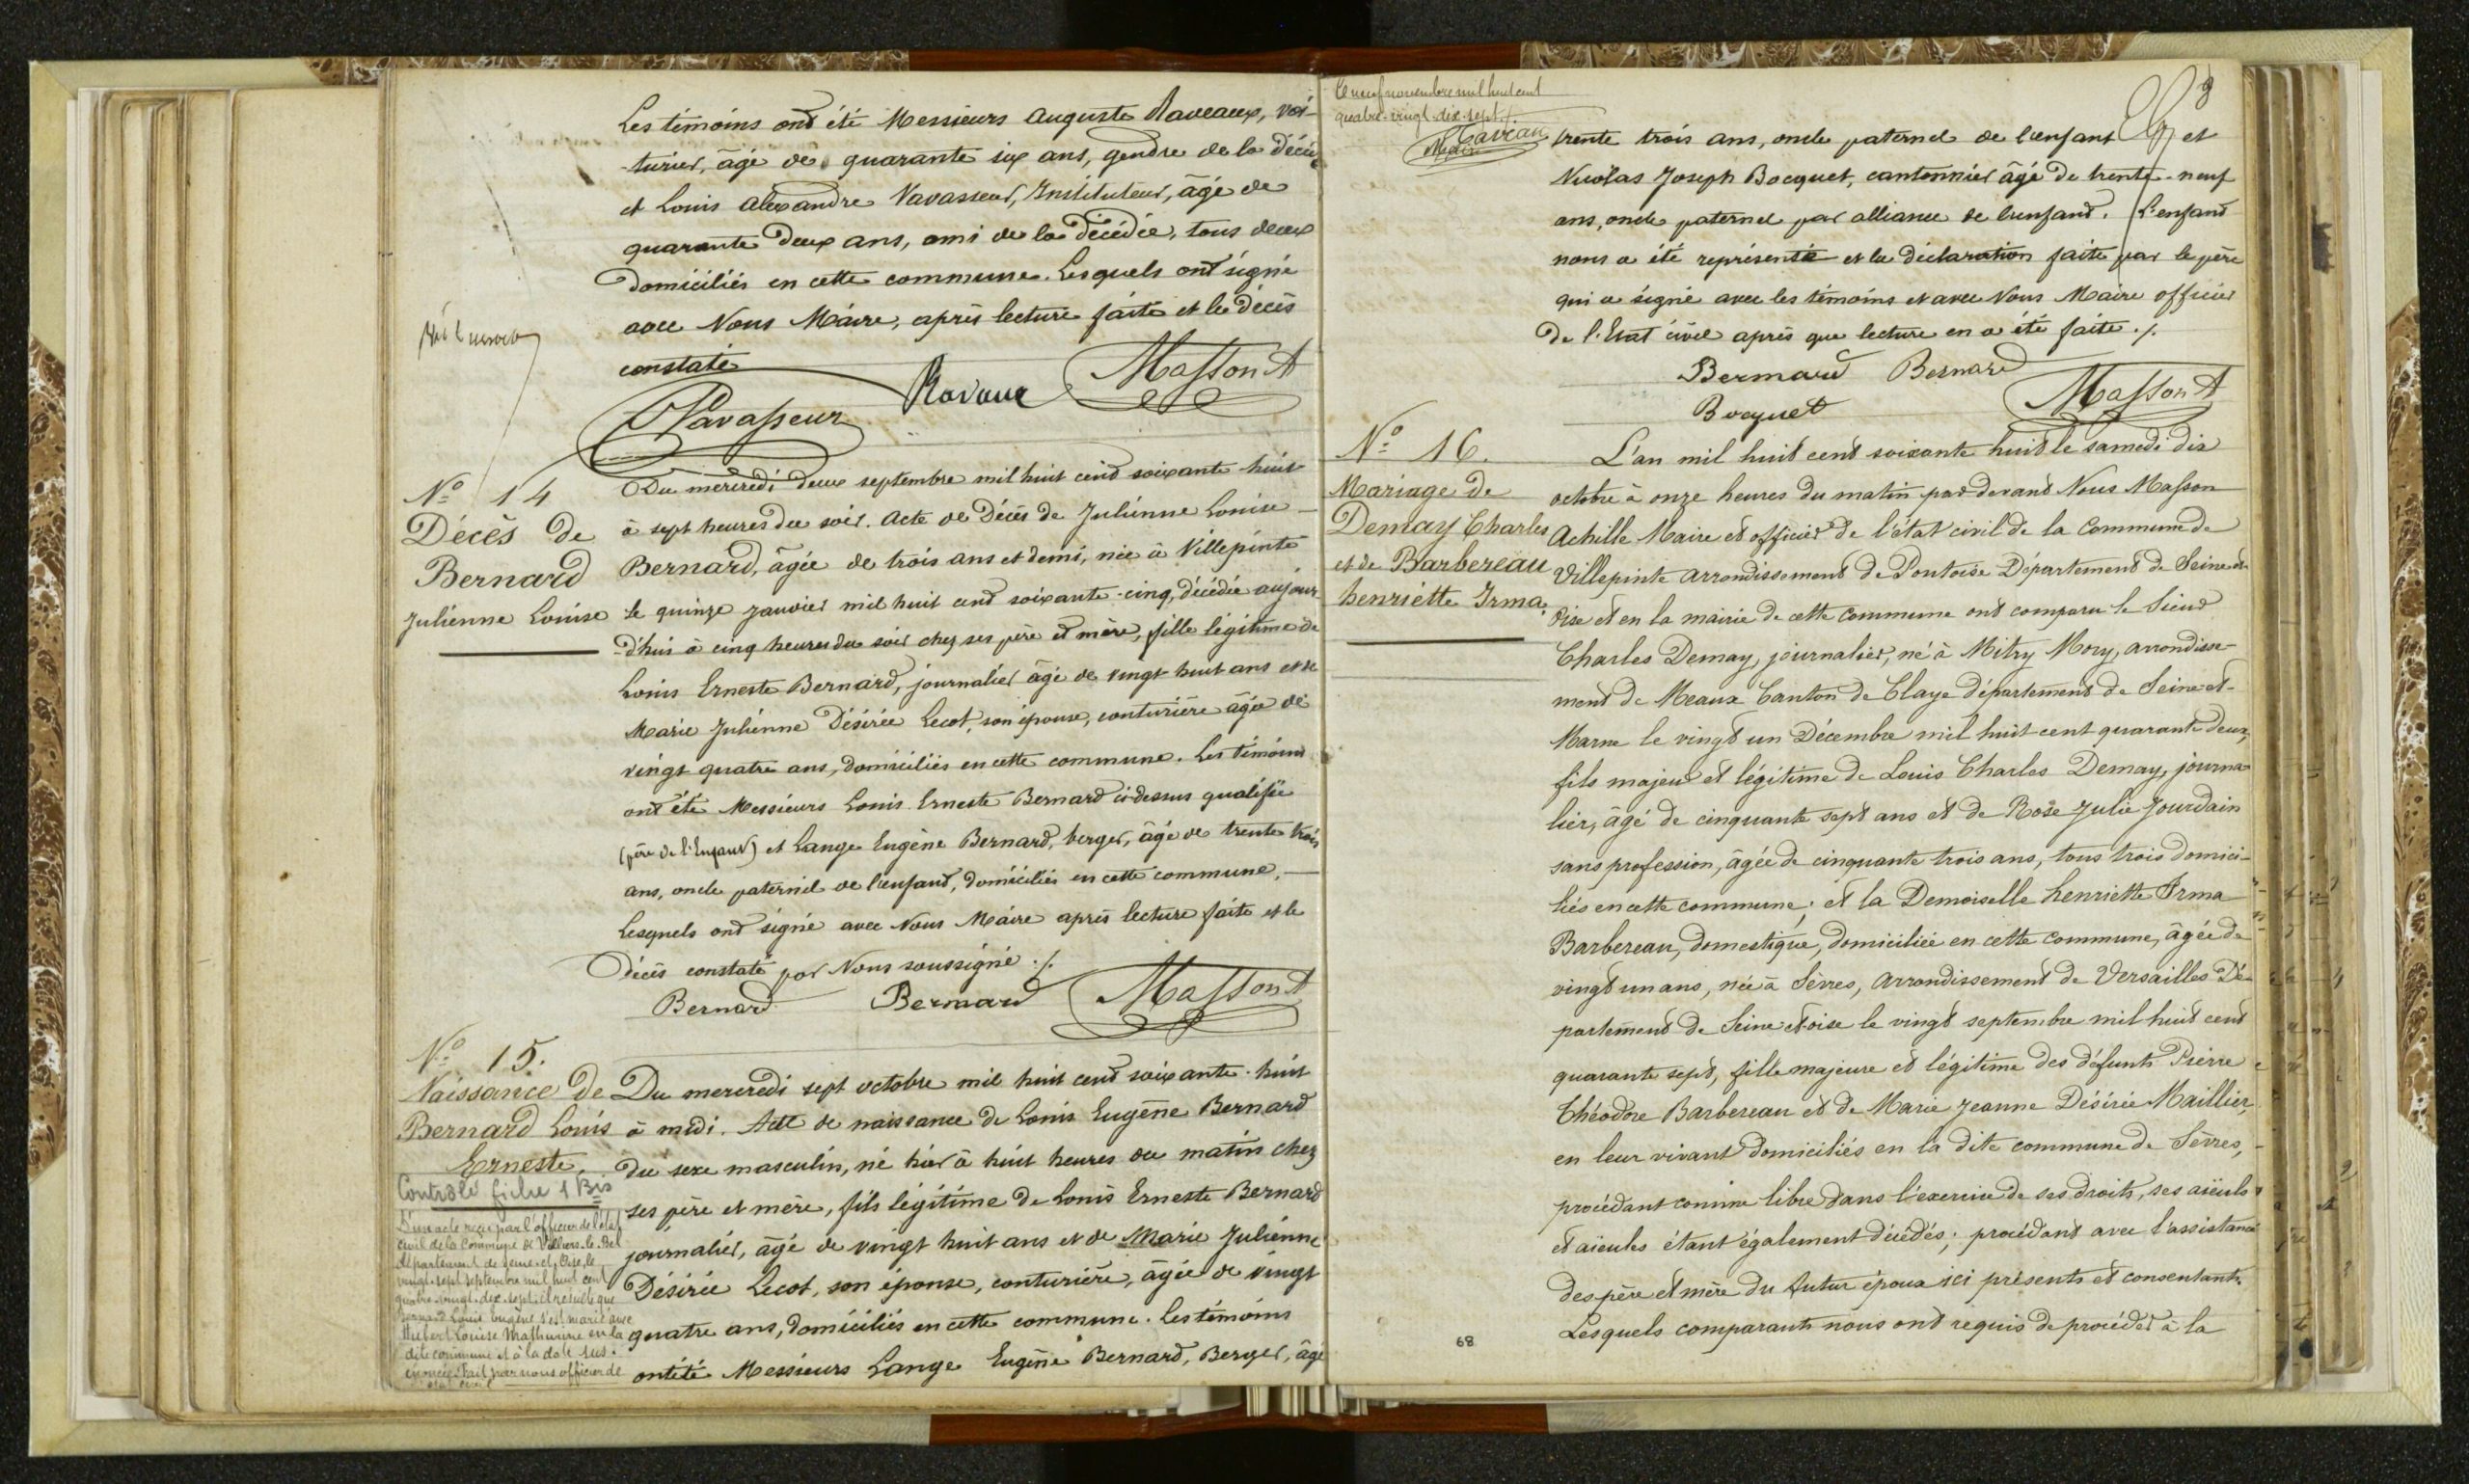 Les témoins ont été Messieurs Auguste Raveaux, voi-
-turier, âgé de quarante six ans, gendre de la décédée
et Louis Alexandre Vavasseur, Instituteur, âgé de
quarante deux ans, ami de la décédée, tous deux
domiciliés en cette commune. Lesquels ont signé
avec Nous Maire, après lecture faite et le décès
constaté
Vavasseur Ravaux Masson A
N° 14
Décès de
Bernard
Julienne Louise
Du mercredi deux septembre mil huit cent soixante huit
à sept heures du soir. Acte de Décès de Julienne Louise
Bernard, âgée de trois ans et demi, née à Villepinte
le quinze janvier mil huit cent soixante-cinq, décédée aujour
-d'hui à cinq heures du soir chez ses père et mère, fille légitime de
Louis Erneste Bernard, journalier âgé de vingt huit ans et de
Marie Julienne Désirée Lecot, son épouse, couturière âgée de
vingt quatre ans, domiciliés en cette commune. Les témoins
ont été Messieurs Louis Erneste Bernard ci-dessus qualifié
(père de l'Enfant) et Lange Eugène Bernard, berger, âgé de trente trois
ans, oncle paternel de l'enfant, domiciliés en cette commune,
Lesquels ont signé avec Nous Maire après lecture faite et le
décès constaté par Nous soussigné ./.
Bernard Bernard Masson A
N° 15.
Naissance de
Bernard Louis
Erneste.
Controlé fiche 1 Bis
D'un acte reçu par l'officier de l'état
civil de la Commune de Villiers-le-Bel
département de Seine-et-Oise, le
vingt-sept septembre mil huit cent
quatre-vingt-dix-sept il résulte que
Bernard Louis Eugène s'est marié avec
Hubert Louise Mathurine en la
dite commune et à la date sus-
énoncée. Fait par nous officier de
état civil
Du mercredi sept octobre mil huit cent soixante-huit
à midi. Acte de naissance de Louis Eugène Bernard
du sexe masculin, né hier à huit heures du matin chez
ses père et mère, fils légitime de Louis Erneste Bernard
journalier, âgé de vingt huit ans et de Marie Julienne
Désirée Lecot, son épouse, couturière, âgée de vingt
quatre ans, domiciliés en cette commune. Les témoins
ont été Messieurs Lange Eugène Bernard, Berger, âgé
le neuf novembre mil huit cent
quatre-vingt-dix-sept
9
trente trois ans, oncle paternel de l'enfant et
Nicolas Joseph Bocquet, cantonnier âgé de trente-neuf
ans, oncle paternel par alliance de l'enfant. L'enfant
nous a été représenté et la déclaration faite par le père
qui a signé avec les témoins et avec Nous Maire officier
de l'Etat civil après que lecture en a été faite ./.
Bernard Bernard
Bocquet Masson A
N° 16.
Mariage de
Demay Charles
et de Barbereau
henriette Irma.
L'an mil huit cent soixante huit le samedi dix
octobre à onze heures du matin par devant Nous Masson
Achille Maire et officier de l'état civil de la Commune de
Villepinte arrondissement de Pontoise Département de Seine et
Oise et en la mairie de cette commune ont comparu le Sieur
Charles Demay, journalier, né à Mitry Mory, arrondisse-
ment de Meaux Canton de Claye département de Seine et-
Marne le vingt un Décembre mil huit cent quarante deux,
fils majeur et légitime de Louis Charles Demay, journa-
lier, âgé de cinquante sept ans et de Rose Julie Jourdain
sans profession, âgée de cinquante trois ans, tous trois domici-
liés en cette commune; et la Demoiselle henriette Irma
Barbereau, domestique, domiciliée en cette commune, âgée de
vingt un ans, née à Sèvres, Arrondissement de Versailles Dé-
partement de Seine et oise le vingt septembre mil huit cent
quarante sept, fille majeure et légitime des défunts Pierre
Théodore Barbereau et de Marie Jeanne Désirée Maillier,
en leur vivant domiciliés en la dite commune de Sèvres,
procédant comme libre dans l'exercice de ses droits, ses aïeuls
et aïeules étant également décédés; procédant avec l'assistance
des père et mère du futur époux ici présents et consentants
Lesquels comparants nous ont requis de procéder à la
68